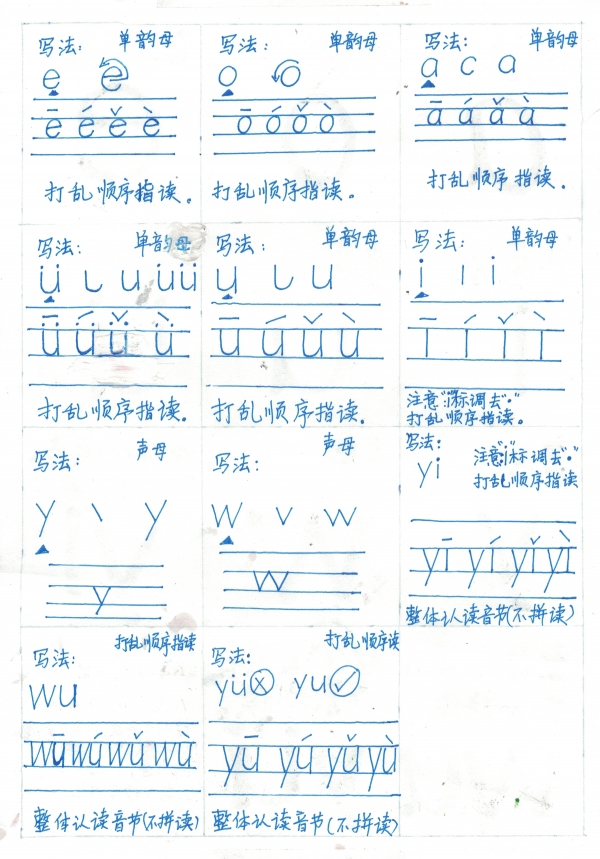 写法: 单韵母
e e
ē é ě è
打乱顺序指读。
写法: 单韵母
o o
ō ó ǒ ò
打乱顺序指读。
写法: 单韵母
a c a
ā á ǎ à
打乱顺序指读.
写法: 单韵母
ü ㇄ u ü ü
ǖ ǘ ǚ ǜ
打乱顺序指读.
写法: 单韵母
u ㇄ u
ū ú ǔ ù
打乱顺序指读.
写法: 单韵母
i ı i
ī í ǐ ì
注意"i"标调去"·"
打乱顺序指读。
写法: 声母
y 丶 y
y
写法: 声母
w v w
w
写法: 注意"i"标调去"·"
yi 打乱顺序指读
yī yí yǐ yì
整体认读音节(不拼读)
打乱顺序指读
写法:
wu
wū wú wǔ wù
整体认读音节(不拼读)
打乱顺序读
写法:
yü ⓧ yu ✓
yū yú yǔ yù
整体认读音节(不拼读)